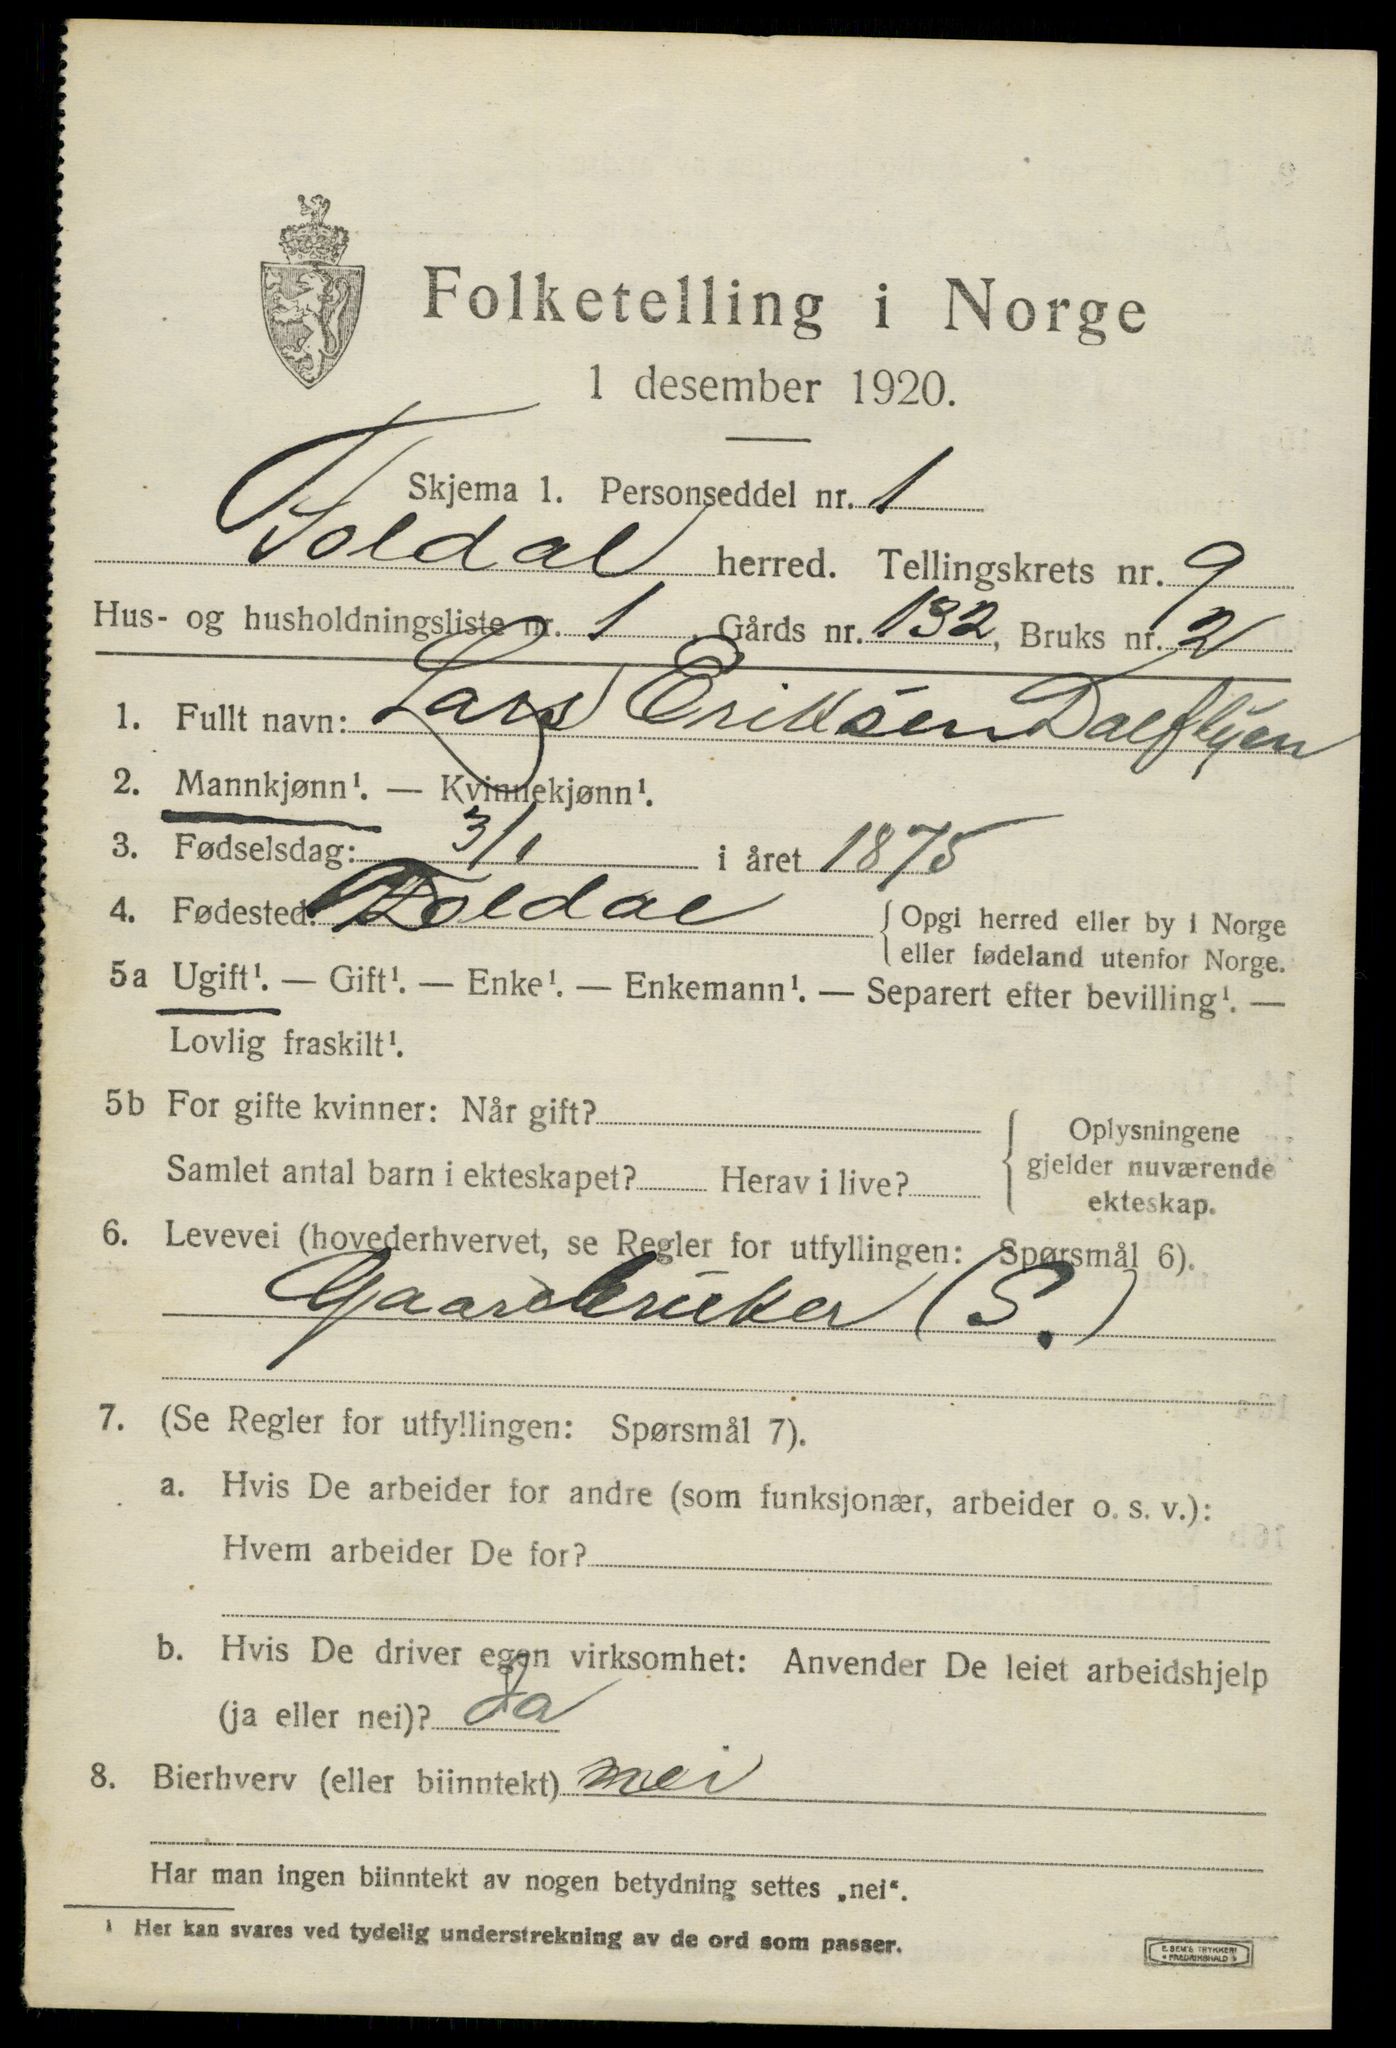 Folketelling i Norge
1 desember 1920.
Skjema 1. Personseddel nr. 1
Foldal herred. Tellingskrets nr. 9
Hus- og husholdningsliste nr. 1. Gårds nr. 132, Bruks nr. 2
1. Fullt navn: Lars Eriksen Dalflyen
2. Mannkjønn¹. — Kvinnekjønn¹.
3. Fødselsdag: 3/1 i året 1875
4. Fødested: Foldal {Opgi herred eller by i Norge
eller fødeland utenfor Norge.
5a Ugift¹. — Gift¹. — Enke¹. — Enkemann¹. — Separert efter bevilling¹. —
Lovlig fraskilt¹.
5b For gifte kvinner: Når gift?
Samlet antal barn i ekteskapet? Herav i live?
{Oplysningene
gjelder nuværende
ekteskap.
6. Levevei (hovederhvervet, se Regler for utfyllingen: Spørsmål 6).
Gaardbruker (S.)
7. (Se Regler for utfyllingen: Spørsmål 7).
a. Hvis De arbeider for andre (som funksjonær, arbeider o. s. v.):
Hvem arbeider De for?
b. Hvis De driver egen virksomhet: Anvender De leiet arbeidshjelp
(ja eller nei)? Ja
8. Bierhverv (eller biinntekt) nei
Har man ingen biinntekt av nogen betydning settes „nei“.
¹ Her kan svares ved tydelig understrekning av de ord som passer.
E. SEM'S TRYKKERI
FREDRIKSHALD